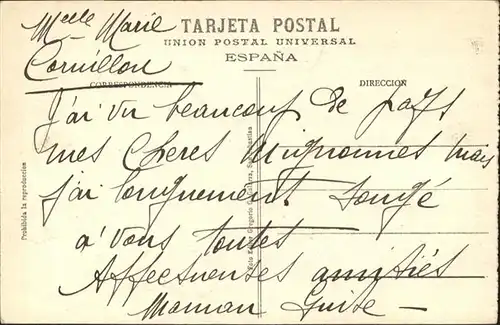 Melle Marie
Cornillon
TARJETA POSTAL
UNION POSTAL UNIVERSAL
ESPAÑA
CORRESPONDENCIA
DIRECCION
J'ai vu beaucoup de pays
mes Chères Mignonnes mais
j'ai longuement songé
a' vous toutes
Affectueuses amitiés
Maman Guite
Prohibida la reproduccion
Gregorio